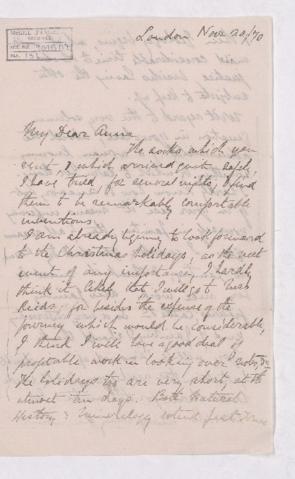 London Nov. 20/70
My Dear Anna
The socks which you
sent, & which arrived quite safely,
I have tried for several nights, & find
them to be remarkably comfortable
inventions.
I am already beginning to look forward
to the Christmas holidays, as the next
event of any importance. I hardly
think it likely that I will go to
for besides the expense of the
journey which would be considerable,
I think I will have a good deal of
profitable work in looking over notes &c
The holidays too are very short, at the
almost ten days. Both Natural
History & Mineralogy